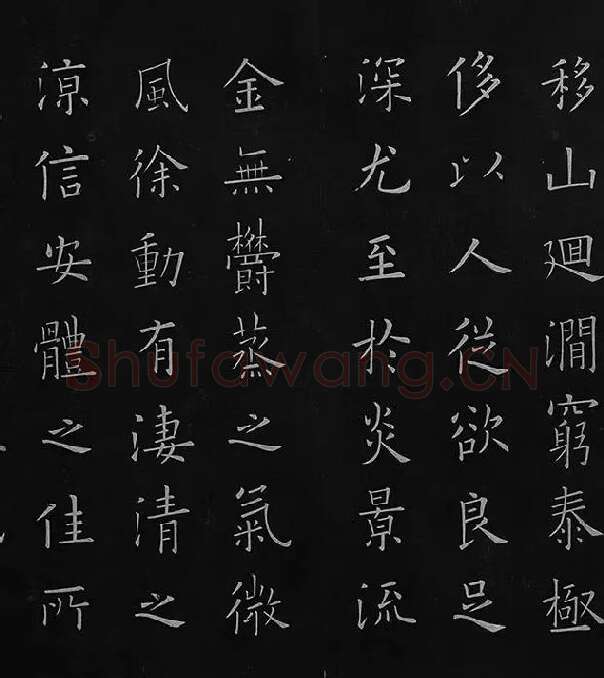 移山廻澗窮泰極
侈以人從欲良足
深尤至於炎景流
金無鬱蒸之氣微
風徐動有淒清之
涼信安體之佳所
Shufawang.CN